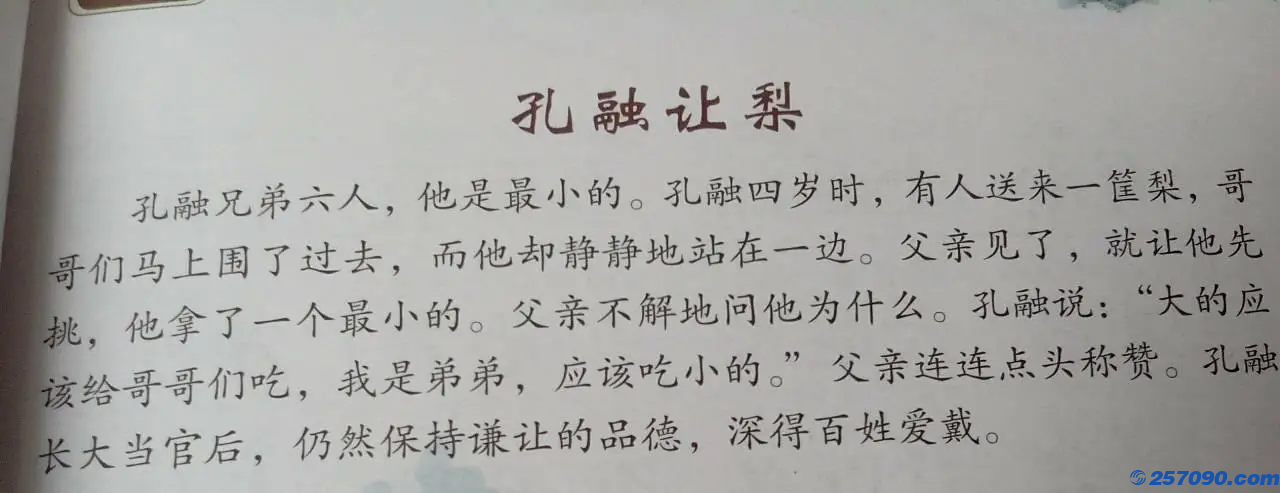 孔融让梨
孔融兄弟六人，他是最小的。孔融四岁时，有人送来一筐梨，哥
哥们马上围了过去，而他却静静地站在一边。父亲见了，就让他先
挑，他拿了一个最小的。父亲不解地问他为什么。孔融说：“大的应
该给哥哥们吃，我是弟弟，应该吃小的。”父亲连连点头称赞。孔融
长大当官后，仍然保持谦让的品德，深得百姓爱戴。
257090.com